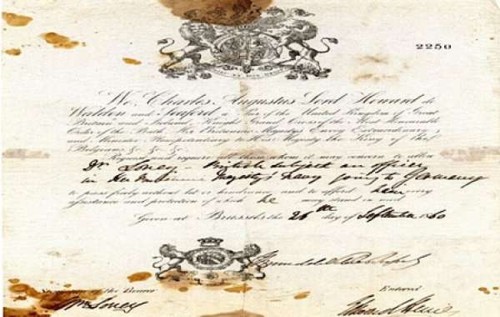 2250
We, Charles Augustus Lord Howard de
Walden and Seaford, a Peer of the United Kingdom of Great
Britain and Ireland, Knight Grand Cross of the Most Honourable
Order of the Bath, Her Britannic Majesty's Envoy Extraordinary
and Minister Plenipotentiary to His Majesty the King of the
Belgians, &c. &c.
Request and require all those whom it may concern to allow
Dr Loney British Subject an officer
in Her Majesty's Navy going to Germany
to pass freely without let or hindrance, and to afford him every
assistance and protection of which he may stand in need.
Given at Brussels the 26th day of September 1860
of the Bearer
Wm Loney